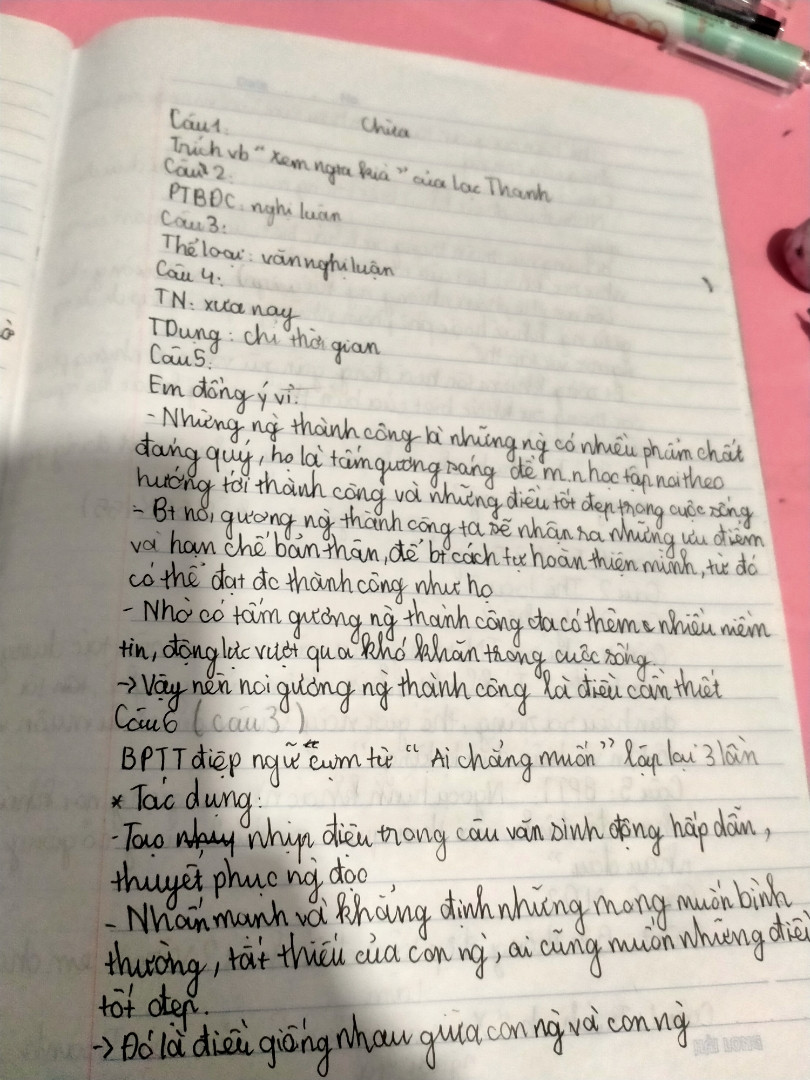 Chữa
Câu 1:
Trích vb "Xem người ta kìa" của Lạc Thanh
Câu 2:
PTBĐC: nghị luận
Câu 3:
Thể loại: văn nghị luận
Câu 4:
TN: xưa nay
TDụng: chỉ thời gian
Câu 5:
Em đồng ý vì:
- Những ng` thành công là những ng` có nhiều phẩm chất
đáng quý, họ là tấm gương sáng để m.n học tập noi theo
hướng tới thành công và những điều tốt đẹp trong cuộc sống
- Bt noi gương ng` thành công ta sẽ nhận ra những ưu điểm
và hạn chế bản thân, để bt cách tự hoàn thiện mình, từ đó
có thể đạt đc thành công như họ
- Nhờ có tấm gương ng` thành công ta có thêm nhiều niềm
tin, động lực vượt qua khó khăn trong cuộc sống.
-> Vậy nên noi gương ng` thành công là điều cần thiết
Câu 6 (câu 3)
BPTT điệp ngữ "cụm từ "Ai chẳng muốn" lặp lại 3 lần
* Tác dụng:
- Tạo nhịp điệu trong câu văn sinh động hấp dẫn,
thuyết phục ng` đọc
- Nhấn mạnh và khẳng định những mong muốn bình
thường, tất thiếu của con ng`, ai cũng muốn những điều
tốt đẹp.
-> Đó là điều giống nhau giữa con ng` và con ng`